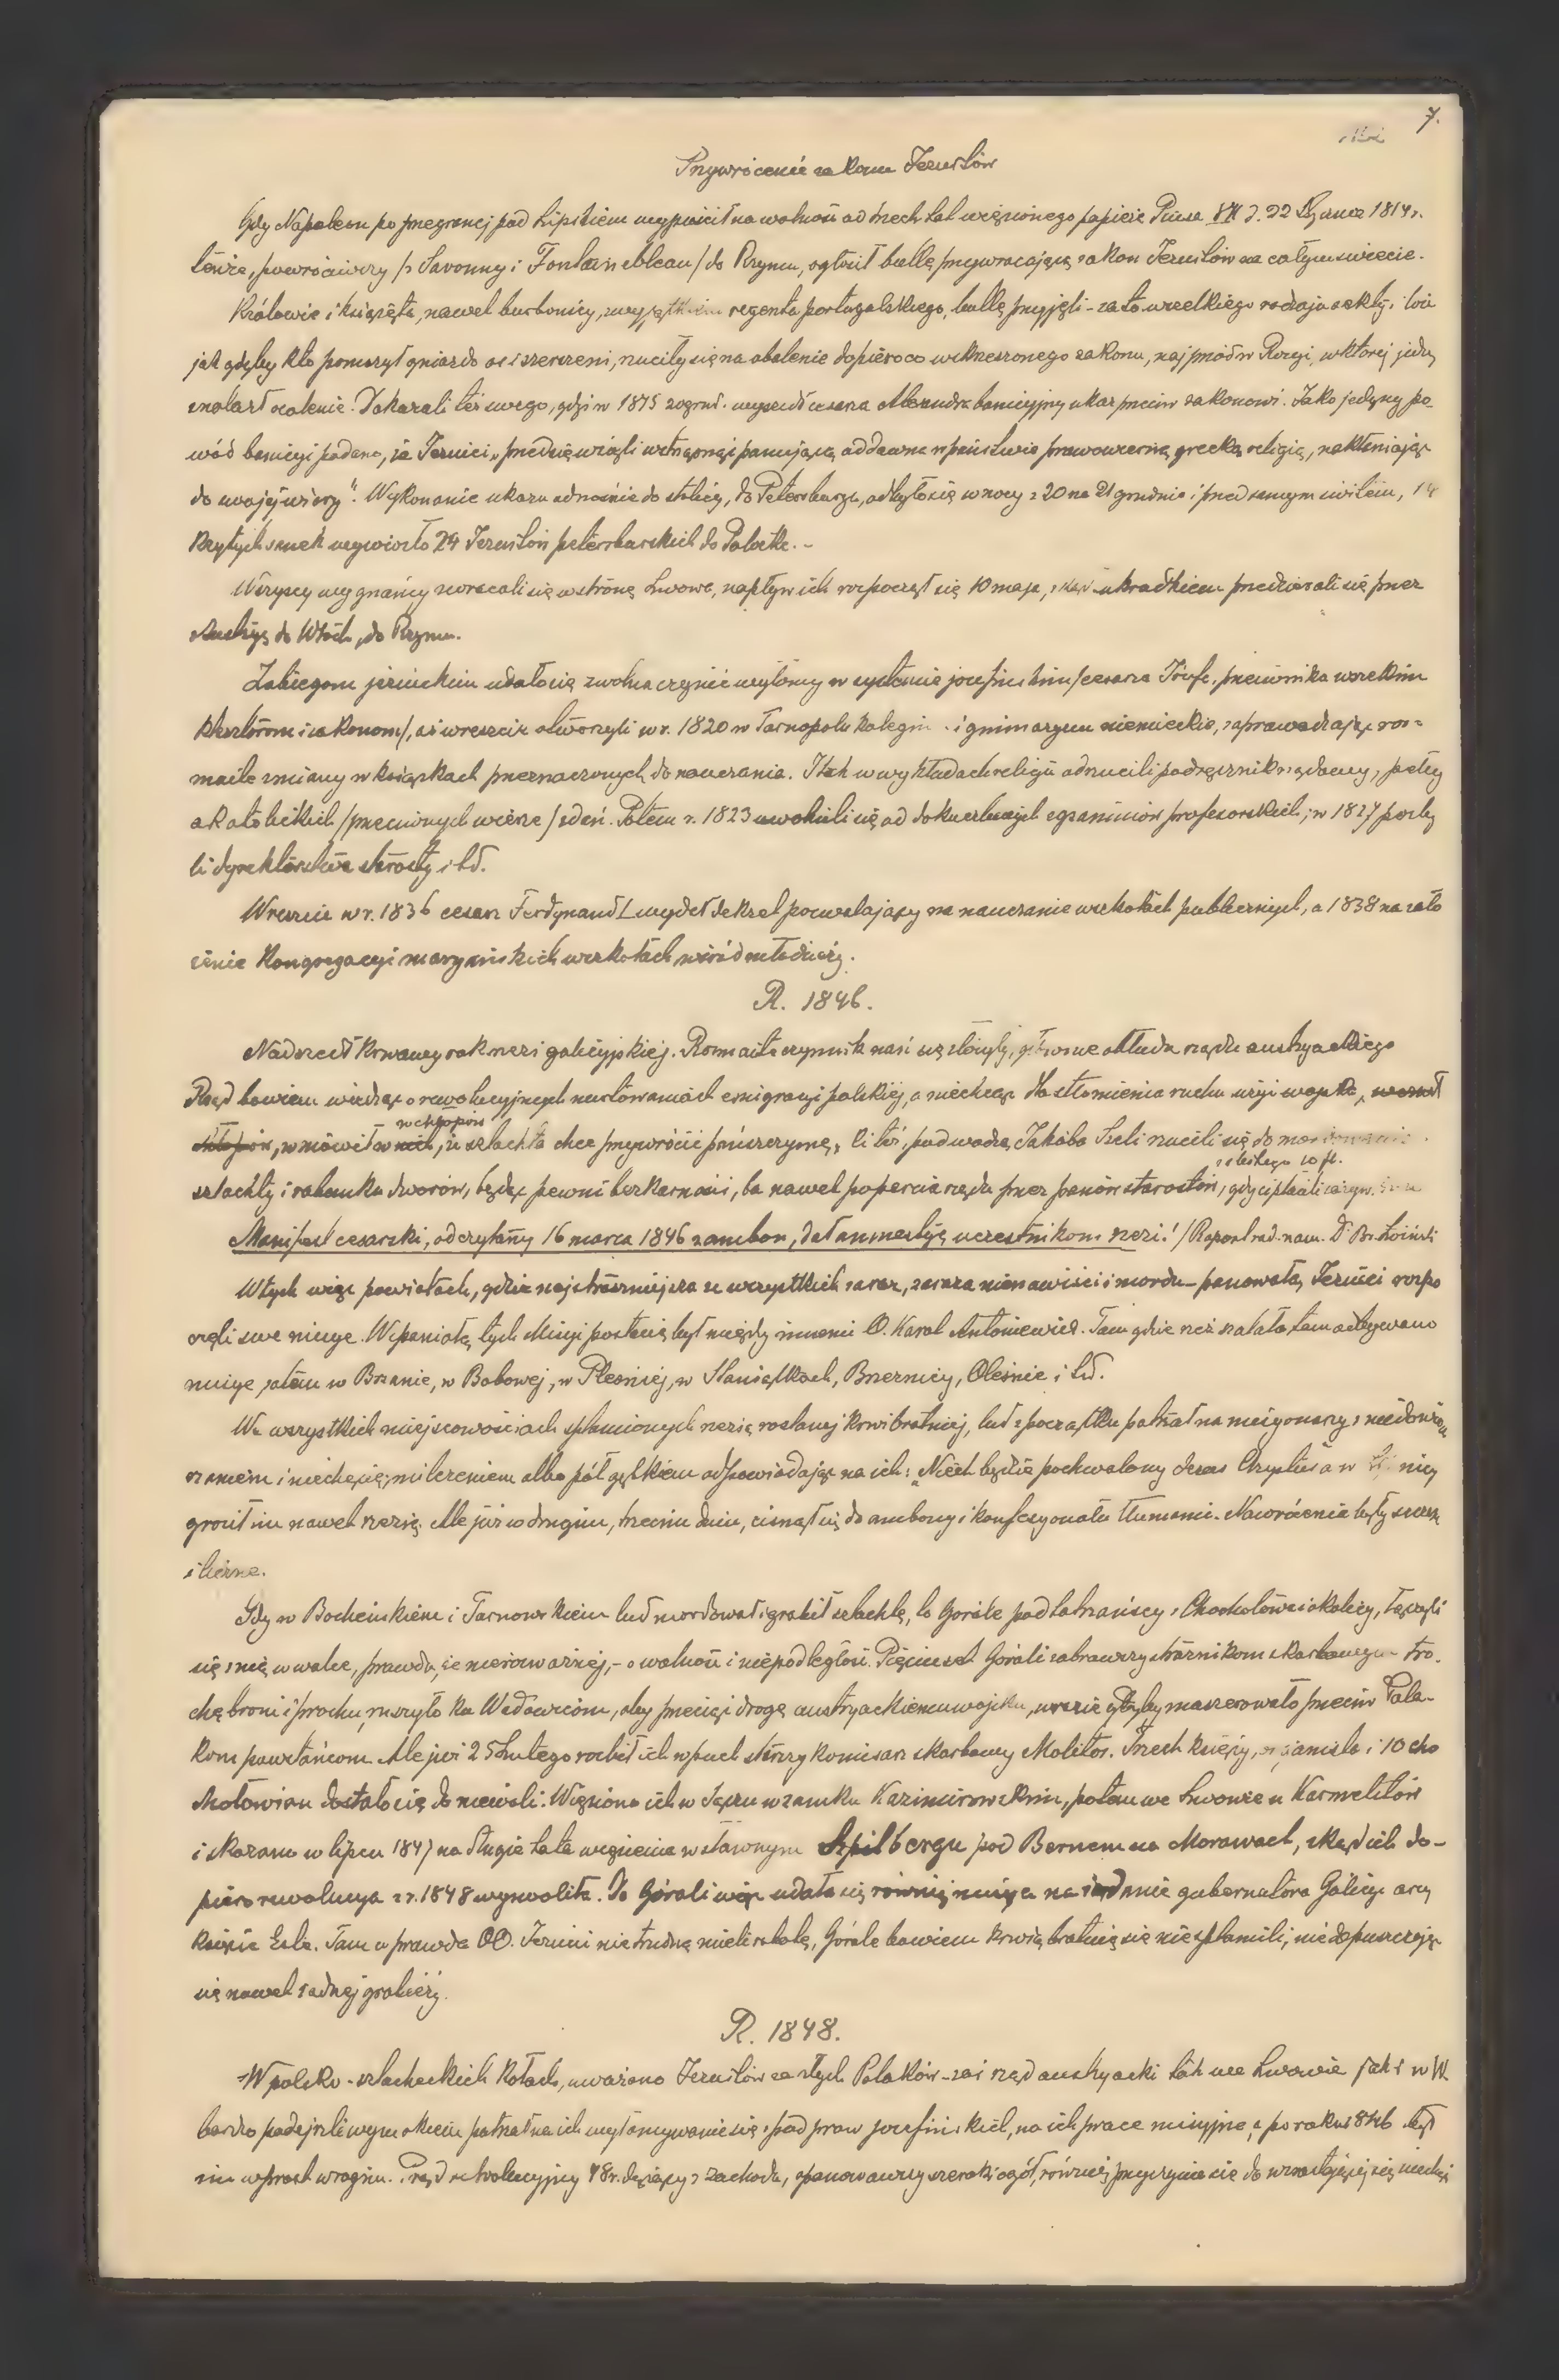 7.
Przywrócenie zakonu Jezuitów
Gdy Napoleon po przegranej pod Lipskiem wypuścił na wolność od trzech lat więzionego papieża Piusa VII d. 22 Stycznia 1814 r.
tenże, powróciwszy /z Savonny i Fontainebleau/ do Rzymu, ogłosił bullę, przywracającą zakon Jezuitów na całym świecie.
Królowie i książęta, nawet burbońscy, z wyjątkiem regenta portugalskiego, bullę przyjęli - za to wszelkiego rodzaju sekty i
jak gdyby kto poruszył gniazdo os i szerszeni, rzuciły się na obalenie dopiero co wskrzeszonego zakonu, najprzód w Rosyi, w której jedy
znalazł ocalenie. Dokazali też swego, gdyż w 1815 20 grud. wyszedł cesarza Alexandra banicyjny ukaz przeciw zakonowi. Jako jedyny po-
wód banicyi podano, że Jezuici „przedsięwzięli wstrząsnąć panującą od dawna w państwie prawowierną grecką religią, nakłaniając
do swojej wiary". Wykonanie ukazu odnośnie do stolicy, do Petersburga, odbyło się w nocy z 20 na 21 grudnia i przed samym świtem, 14
krytych sanek wywiozło 24 Jezuitów petersburskich do Połocka. -
Wszyscy wygnańcy zwracali się w stronę Lwowa, napływ ich rozpoczął się 10 maja, skąd ukradkiem przedzierali się przez
Austryę do Włoch, do Rzymu.
Zabiegom jezuickim udało się zwolna czynić wyłomy w systemie józefińskim /cesarza Józefa, przeciwnika wszelkim
klasztorom i zakonom/, aż wreszcie otworzyli w r. 1820 w Tarnopolu kolegium i gimnazyum niemieckie, zaprowadzając roz-
maite zmiany w książkach przeznaczonych do nauczania. I tak w wykładach religii odrzucili podręcznik rządowy, pełny
akatolickich /przeciwnych wierze/ zdań. Potem r. 1823 uwolnili się od dokuczliwych egzaminów profesorskich; w 1827 pozby
li dyrektorstwa starosty i td.
Wreszcie w r. 1836 cesarz Ferdynand I wydał dekret pozwalający na nauczanie w szkołach publicznych, a 1838 na zało
żenie Kongregacyi maryańskich w szkołach wśród młodzieży.
R. 1846.
Nadszedł krwawy rok rzezi galicyjskiej. Rozmaite czynniki nań się złożyły, głównie obłuda rządu austryackiego
Rząd bowiem wiedząc o rewolucyjnych usiłowaniach emigracyi polskiej, a niechcąc dla stłumienia ruchu użyć wojska,
w chłopów
chłopów, wmówił w nich, że szlachta chce przywrócić pańszczyznę, Ci też, pod wodzą Jakóba Szeli rzucili się do mordowania
z state 10 fl.
szlachty i rabunku dworów, będąc pewni bezkarności, ba nawet poparcia rządu przez panów starostów, gdy ci płacili
Manifest cesarski, odczytany 16 marca 1846 z ambon, dał amnestyję uczestnikom rzezi! /Raport rad. nam. Dr Br. Łoziński
W tych więc powiatach, gdzie najstraszniejsza ze wszystkich zaraz, zaraza nienawiści i mordu - panowała, Jezuici rozpo
częli swe misye. Wspaniałą tych Misyj postacią był między innemi O. Karol Antoniewicz. Tam gdzie rzeź szalała, tam odbywano
misye zatem w Brzanie, w Bobowej, w Pleśnej, w Staniątkach, Brzeźnicy, Oleśnie i td.
We wszystkich miejscowościach splamionych rzezią rozlanej krwi bratniej, lud z początku patrzał na misyonarzy z niedowie
rzaniem i niechęcią, milczeniem albo półgębkiem odpowiadając na ich: „Niech będzie pochwalony Jezus Chrystus a w nicy
groził im nawet rzezią. Ale już w drugim, trzecim dniu, cisnął się do ambony i konfesyonału tłumami. Nawrócenia były szczere
i liczne.
Gdy w Bocheńskiem i Tarnowskiem lud mordował i grabił szlachtę, to Górale podtatrzańscy z Chochołowa i okolicy, łączyli
się z nią w walce, prawda, że nierównej, - o wolność i niepodległość. Pięciuset Górali zabrawszy strażnikom skarbowym tro-
chę broni i prochu, ruszyło ku Wadowicom, aby przeciąć drogę austryackiemu wojsku, w razie gdyby maszerowało przeciw Pola-
kom powstańcom. Ale już 25 Lutego rozbił ich w puch starszy komisarz skarbowy Molitor. Trzech księży, organista i 10 cho
chołowian dostało się do niewoli. Więziono ich w Sączu w zamku Kazimirowskim, potem we Lwowie u Karmelitów
i skazano w lipcu 1847 na długie lata więzienia w sławnym Szpilbergu pod Bernem na Morawach, skąd ich do-
piero rewolucya z r. 1848 wyzwoliła. Do Górali więc udała się również misya na żądanie gubernatora Galicyi arcy
księcia Este. Tam wprawdzie OO. Jezuici nie trudną mieli robotę, Górale bowiem krwią bratnią się nie splamili, nie dopuszczając
się nawet żadnej grabieży.
R. 1848.
W polsko-szlacheckich kołach, uważano Jezuitów za złych Polaków - zaś rząd austryacki tak we Lwowie jak i w W.
bardzo podejrzliwym okiem patrzał na ich wyłamywanie się z pod praw józefińskich, na ich prace misyjne, a po roku 1846 był
im wprost wrogim. Prąd rewolucyjny 48 r. dążący z zachodu, opanowawszy szeroki ogół, również przyczynia się do wzrastającej się niechęci